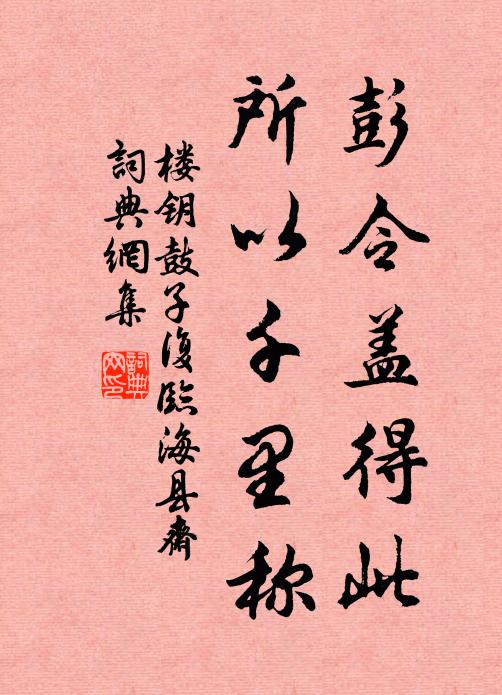 彭令盖得此
所以千里称
楼钥鼓子复临海县斋
词典网集
词典网印